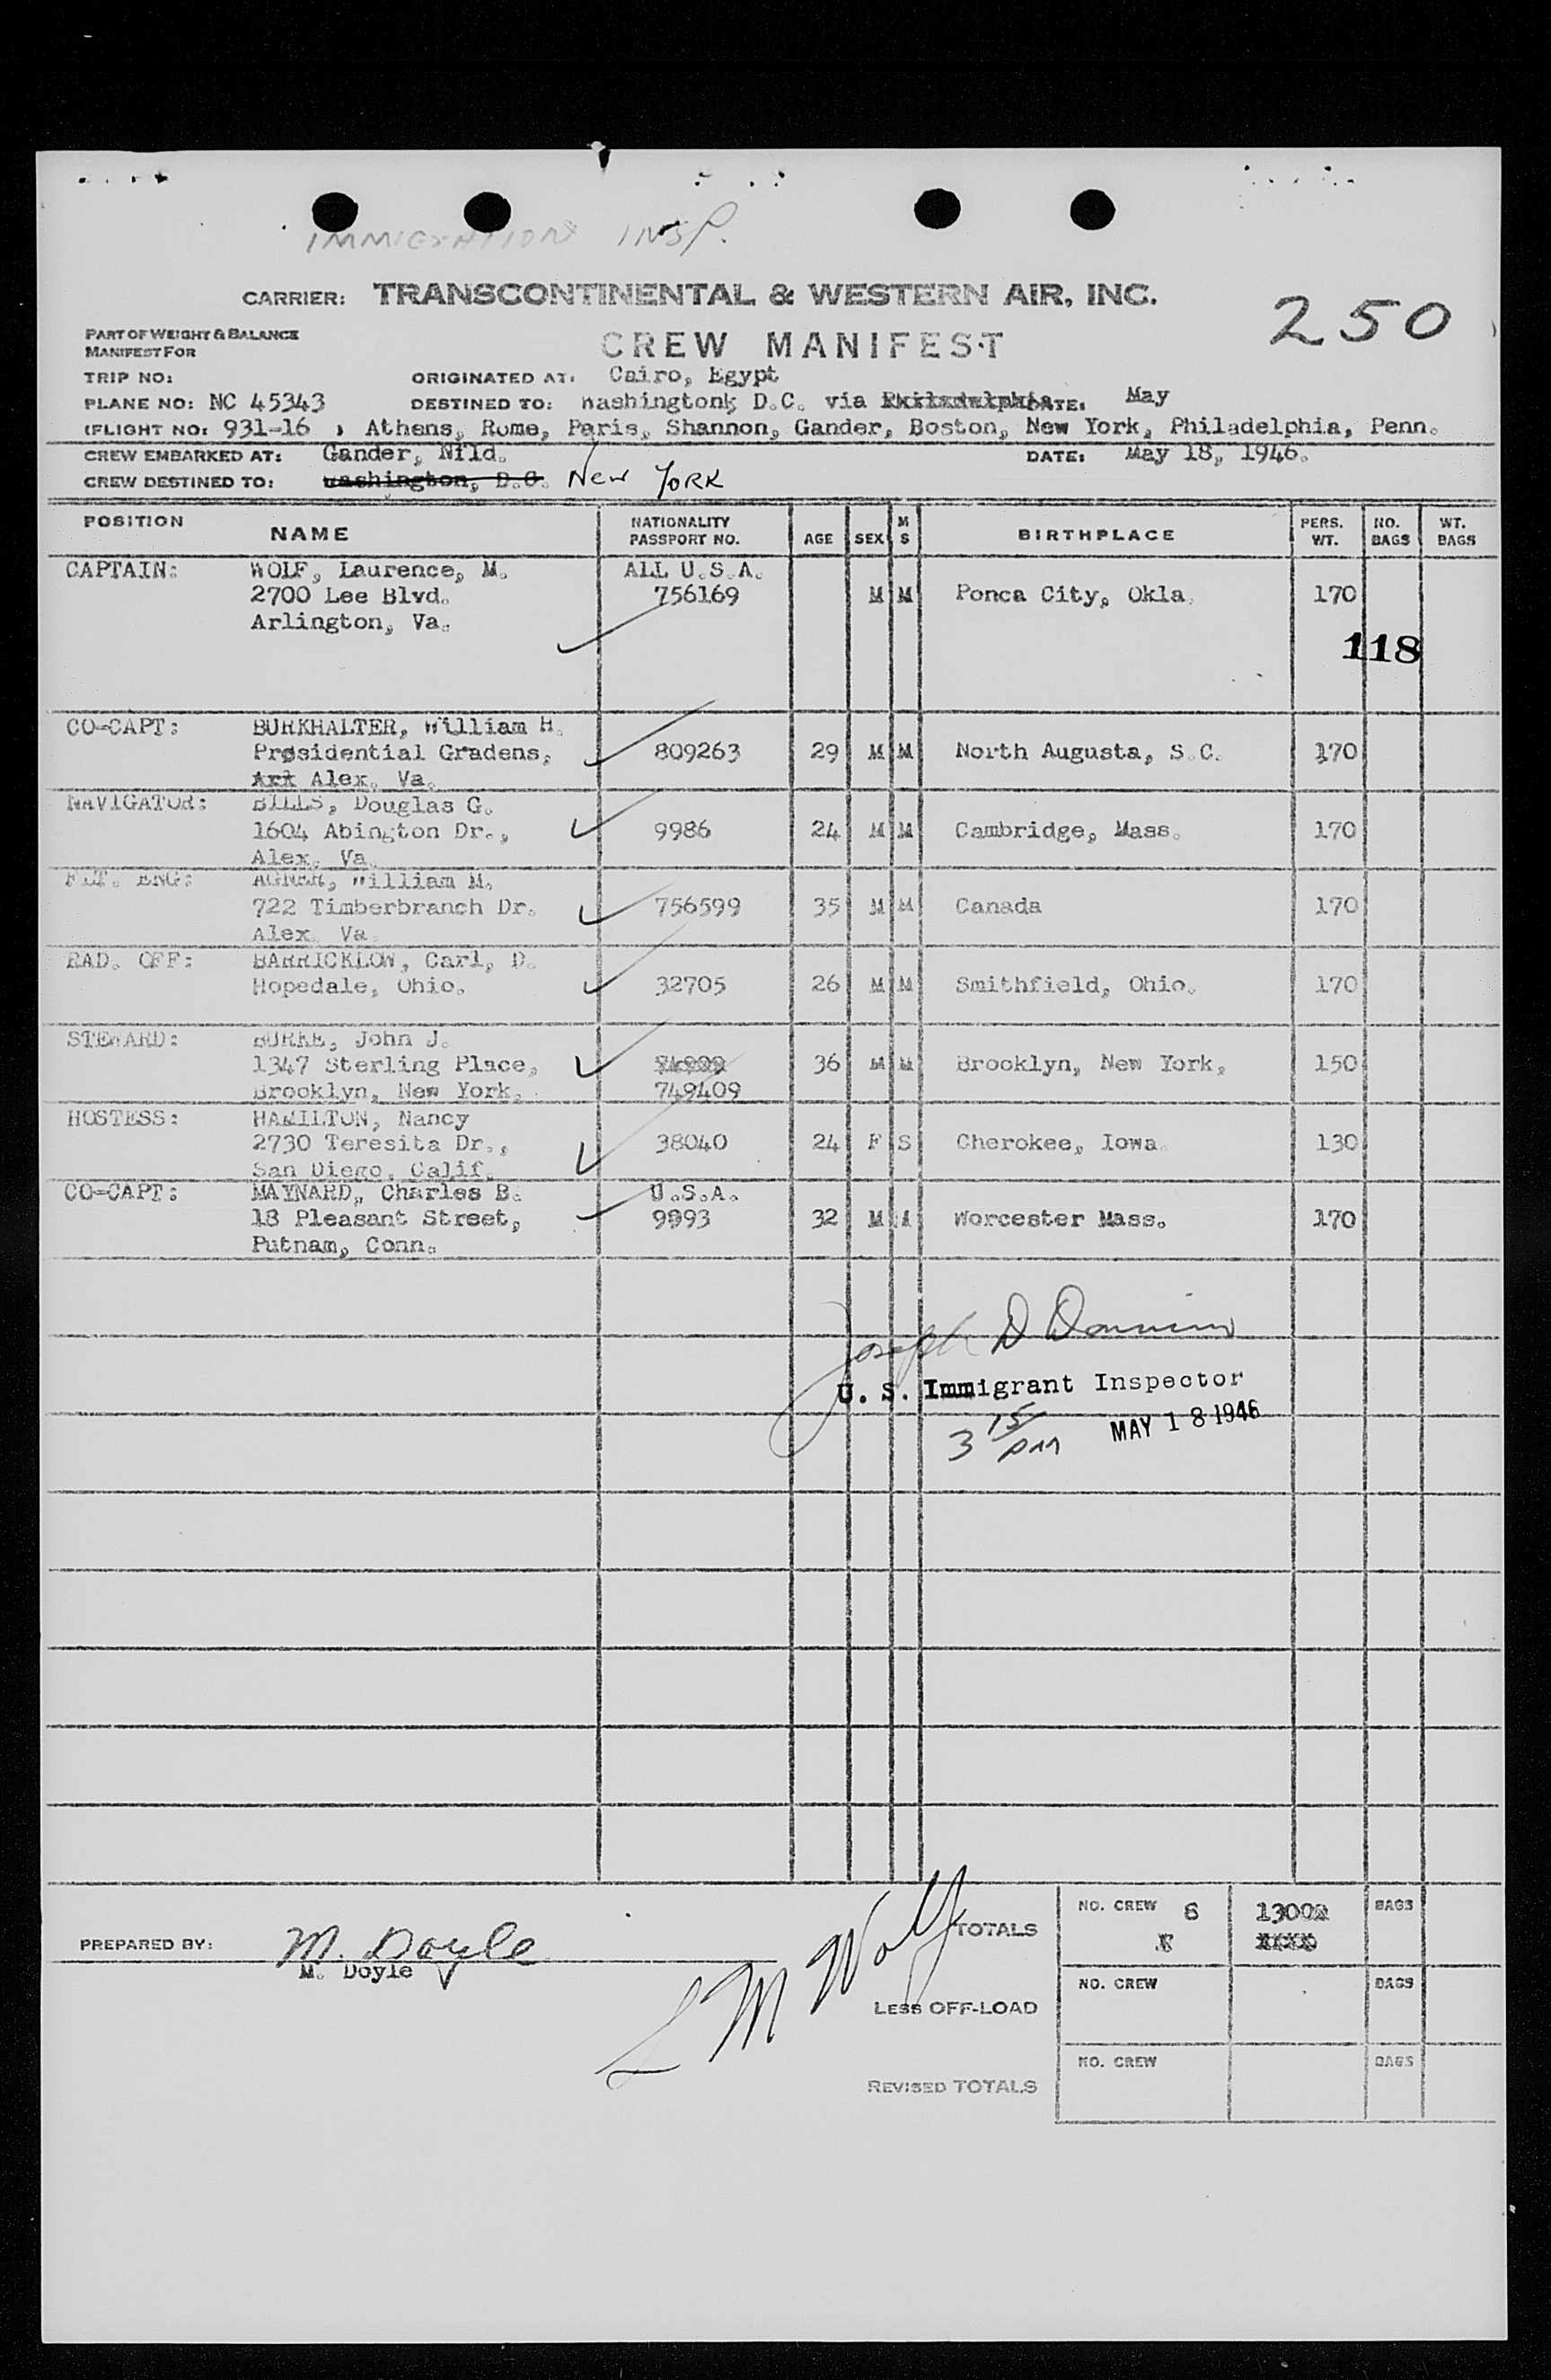 IMMIGRATION INSP.
CARRIER: TRANSCONTINENTAL & WESTERN AIR, INC.
250
PART OF WEIGHT & BALANCE
MANIFEST FOR
CREW MANIFEST
TRIP NO: ORIGINATED AT: Cairo, Egypt
PLANE NO: NC 45343 DESTINED TO: Washington, D.C. via Philadelphia DATE: May
FLIGHT NO: 931-16 , Athens, Rome, Paris, Shannon, Gander, Boston, New York, Philadelphia, Penn.
CREW EMBARKED AT: Gander, Nfld. DATE: May 18, 1946.
CREW DESTINED TO: Washington, D.C. New York
POSITION NAME NATIONALITY PASSPORT NO. AGE SEX M S BIRTHPLACE PERS. WT. NO. BAGS WT. BAGS
CAPTAIN: WOLF, Laurence, M. ALL U.S.A.
2700 Lee Blvd. 756169 M M Ponca City, Okla. 170
Arlington, Va.
118
CO-CAPT: BURKHALTER, William H.
Presidential Gradens, 809263 29 M M North Augusta, S.C. 170
Art Alex. Va.
NAVIGATOR: BILLS, Douglas G.
1604 Abington Dr., 9986 24 M M Cambridge, Mass. 170
Alex. Va.
FLT. ENG: AGNER, William M.
722 Timberbranch Dr. 756599 35 M M Canada 170
Alex. Va.
RAD. OFF: BARRICKLOW, Carl, D.
Hopedale, Ohio. 32705 26 M M Smithfield, Ohio. 170
STEWARD: BURKE, John J.
1347 Sterling Place, 36 M M Brooklyn, New York, 150
Brooklyn, New York. 749409
HOSTESS: HAMILTON, Nancy
2730 Teresita Dr., 38040 24 F S Cherokee, Iowa. 130
San Diego, Calif.
CO-CAPT: MAYNARD, Charles B. U.S.A.
18 Pleasant Street, 9993 32 M M Worcester Mass. 170
Putnam, Conn.
Joseph D
U. S. Immigrant Inspector
3 15/pm MAY 18 1946
PREPARED BY: M. Doyle
M. Doyle
L M Wolf
TOTALS NO. CREW 8 1300 BAGS
LESS OFF-LOAD NO. CREW BAGS
REVISED TOTALS NO. CREW BAGS